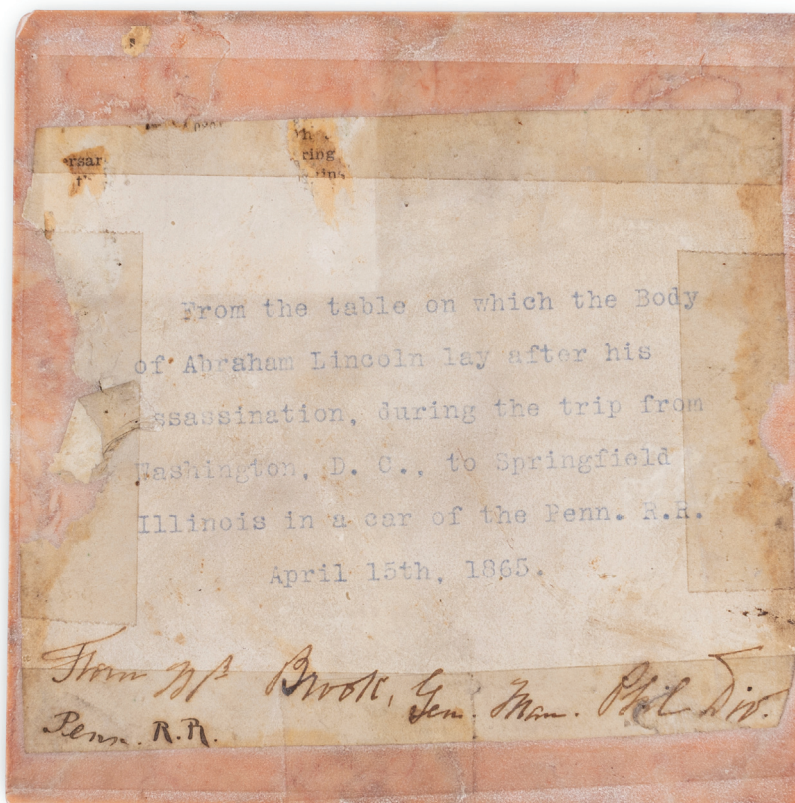 ring
From the table on which the Body
of Abraham Lincoln lay after his
ssassination, during the trip from
Washington, D. C., to Springfield
Illinois in a car of the Penn. R.R.
April 15th, 1865.
From Brook, Gen. Man. Phil Div.
Penn. R.R.